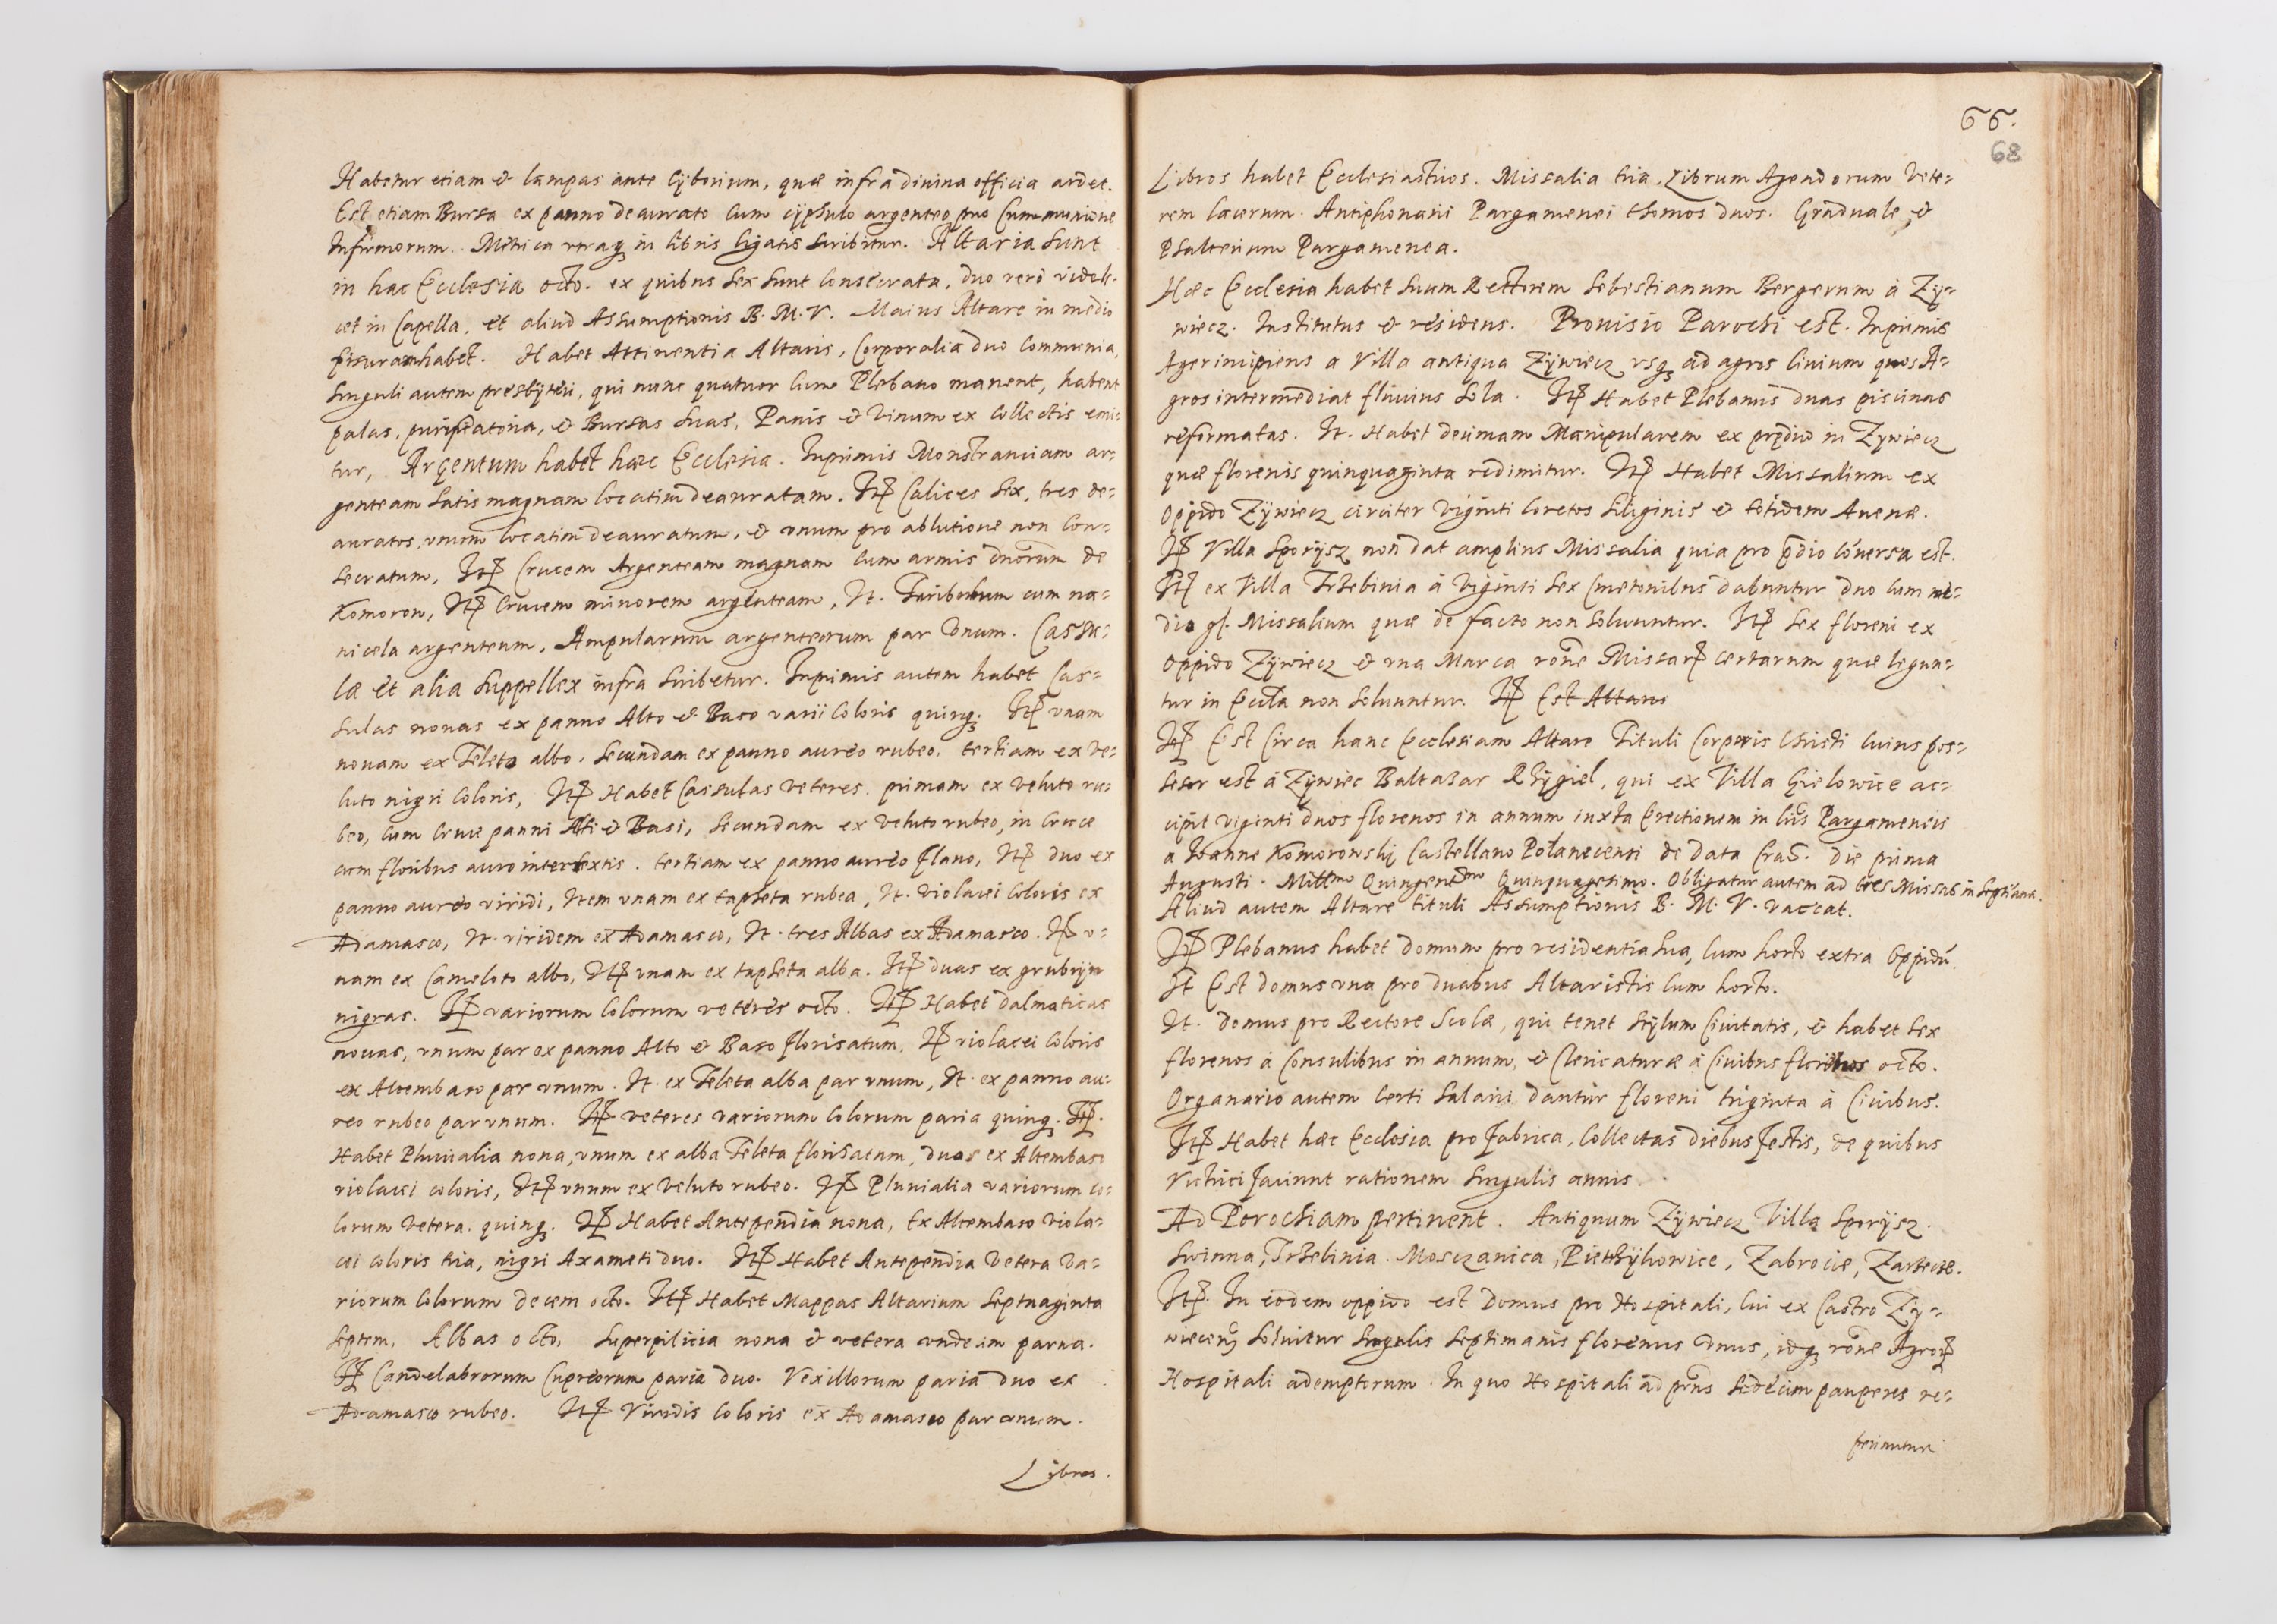 Habetur etiam & lampas ante Cyborium, quæ infra diuina officia ardet.
Est etiam Bursa ex panno deaurato cum cypsulo argenteo pro Cummunione
Infirmorum. Metrica utraq₃ in libris ligatis scribitur. Altaria sunt
in hac Ecclesia octo. ex quibus sex sunt consecrata, duo verò videli-
cet in Capella, et aliud Assumptionis B. M. V. Maius Altare in medio
fissuram habet. Habet Attinentia Altaris, Corporalia duo communia,
singuli autem presbyteri, qui nunc quatuor cum Plebano manent, habent
palas, purificatoria, & Bursas suas, Panis & Vinum ex collectis emi-
tur, Argentum habet hæc Ecclesia. Inprimis Monstranciam ar=
genteam satis magnam locatim deauratam. Itꝝ Calices sex, tres de=
auratos, unum locatim deauratum, & unum pro ablutione non con=
secratum, Itꝝ Crucem Argenteam magnam cum armis dnorum de
Komorow, Itꝝ Crucem minorem argenteam, It. Turibulum cum na=
uicela argenteum, Ampularum argentearum par Vnum. Cassu=
læ et alia suppellex infra scribetur. Inprimis autem habet Cas=
sulas nouas ex panno Alto & Baso varii coloris quinq₃. Itꝝ unam
nouam ex Teleta albo, secundam ex panno aureo rubeo, tertiam ex ve=
luto nigri coloris, Itꝝ Habet Cassulas veteres, primam ex veluto ru=
beo, cum Cruce panni Alti & Basi, secundam ex veluto rubeo, in Cruce
cum floribus auro intertextis. tertiam ex panno aureo flauo, Itꝝ duo ex
panno aureo viridi, Item unam ex tapheta rubea, It. violacei coloris ex
Adamasco, It. viridem ex Adamasco, It. tres Albas ex Adamasco. Itꝝ v=
nam ex Cameloto albo, Itꝝ unam ex tapheta alba. Itꝝ duas ex grubryn
nigras. Itꝝ variorum colorum veteres octo. Itꝝ Habet dalmaticas
nouas, unum par ex panno Alto & Baso florisatum, Itꝝ violacei coloris
ex Altembaso par unum. It. ex Teleta alba par unum, It. ex panno au=
reo rubeo par unum. Itꝝ veteres variorum colorum paria quinq₃. Itꝝ.
Habet Pluuialia noua, unum ex alba Teleta florisatum, duas ex Altembaso
violacei coloris, Itꝝ unum ex veluto rubeo. Itꝝ Pluuialia variorum co=
lorum vetera quinq₃. Itꝝ Habet Antependia noua, Ex Altembaso viola=
cei coloris tria, nigri Axameti duo. Itꝝ Habet Antependia Vetera va=
riorum colorum decem octo. Itꝝ Habet Mappas Altarium septuaginta
septem, Albas octo, Superpilicia noua & vetera undecim parua.
Itꝝ Candelabrorum Cupreorum paria duo. Vexillorum paria duo ex
Adamasco rubeo. Itꝝ Viridis coloris ex Adamasco par unum.
Libros.
66.
68
Libros habet Ecclesiasticos. Missalia tria, Librum Agendorum Vete=
rem lacerum. Antiphonarii Pargamenei thomos duos. Graduale &
Psalterium Pargamenea.
Hæc Ecclesia habet suum Rectorem Sebestianum Bergerum à Zÿ=
wiecz. Institutus & residens. Prouisio Parochi est. Inprimis
Ager incipiens a Villa antiqua Zÿwiecz usq₃ ad agros Ciuium quos A=
gros intermediat fluuius Sola. Itꝝ Habet Plebanus duas piscinas
reformatas. It. Habet decimam Manipularem ex prędio in Zywiecz
quæ florenis quinquaginta redimitur. Itꝝ Habet Missalium ex
Oppido Zÿwiecz circiter viginti coretos siliginis & totidem Auenæ.
Itꝝ Villa Sporÿsz non dat amplius Missalia quia pro p̄dio cóuersa est.
Itꝝ ex Villa Trzebinia à Viginti sex Cmetonibus dabuntur duo cum me=
dio gl. Missalium quæ de facto non soluuntur. Itꝝ sex floreni ex
oppido Zÿwiecz & una Marca rõne Missarꝝ certarum quæ legun=
tur in Eccl̃a non soluuntur. Itꝝ Est Altare
Itꝝ Est Circa hanc Ecclesiam Altare Tituli Corporis Christi cuius pos=
sesor est à Zÿwiec Baltazar Rhÿgiel, qui ex Villa Gielowice ac=
cipit viginti duos florenos in annum iuxta Erectionem in Lr̃is Pargameneis
a Ioanne Komorowskÿ Castellano Polanecensi de Data Crac. die prima
Augusti. Mill͞mo Quingent͞mo Quinquagesimo. Obligatur autem ad tres Missas in Septĩana.
Aliud autem Altare tituli Assumptionis B. M. V. vaccat.
Itꝝ Plebanus habet domum pro residentia sua, cum horto extra Oppidũ.
It Est domus una pro duabus Altaristis cum horto.
It. domus pro Rectore Scolæ, qui tenet stÿlum Ciuitatis, & habet sex
florenos à Consulibus in annum, & Clericaturæ à Ciuibus florenos octo.
Organario autem certi salarii dantur floreni triginta à Ciuibus.
Itꝝ Habet hæc Ecclesia pro fabrica, Collectas diebus festis, de quibus
Victrici faciunt rationem singulis annis.
Ad Parochiam pertinent. Antiquum Zÿwiecz Villa Sporÿsz.
Swinna, Trzebinia. Mosczanica, Pietrzÿkowice, Zabrocie, Zarzecze.
Itꝝ. In eodem oppido est Domus pro Hospitali, cui ex Castro Zÿ=
wiecen̄ soluitur singulis septimanis florenus Vnus, idq₃ rõne Agrorꝝ
Hospitali ademptorum. In quo Hospitali ad pr̃ns sedecim pauperes re=
periuntur